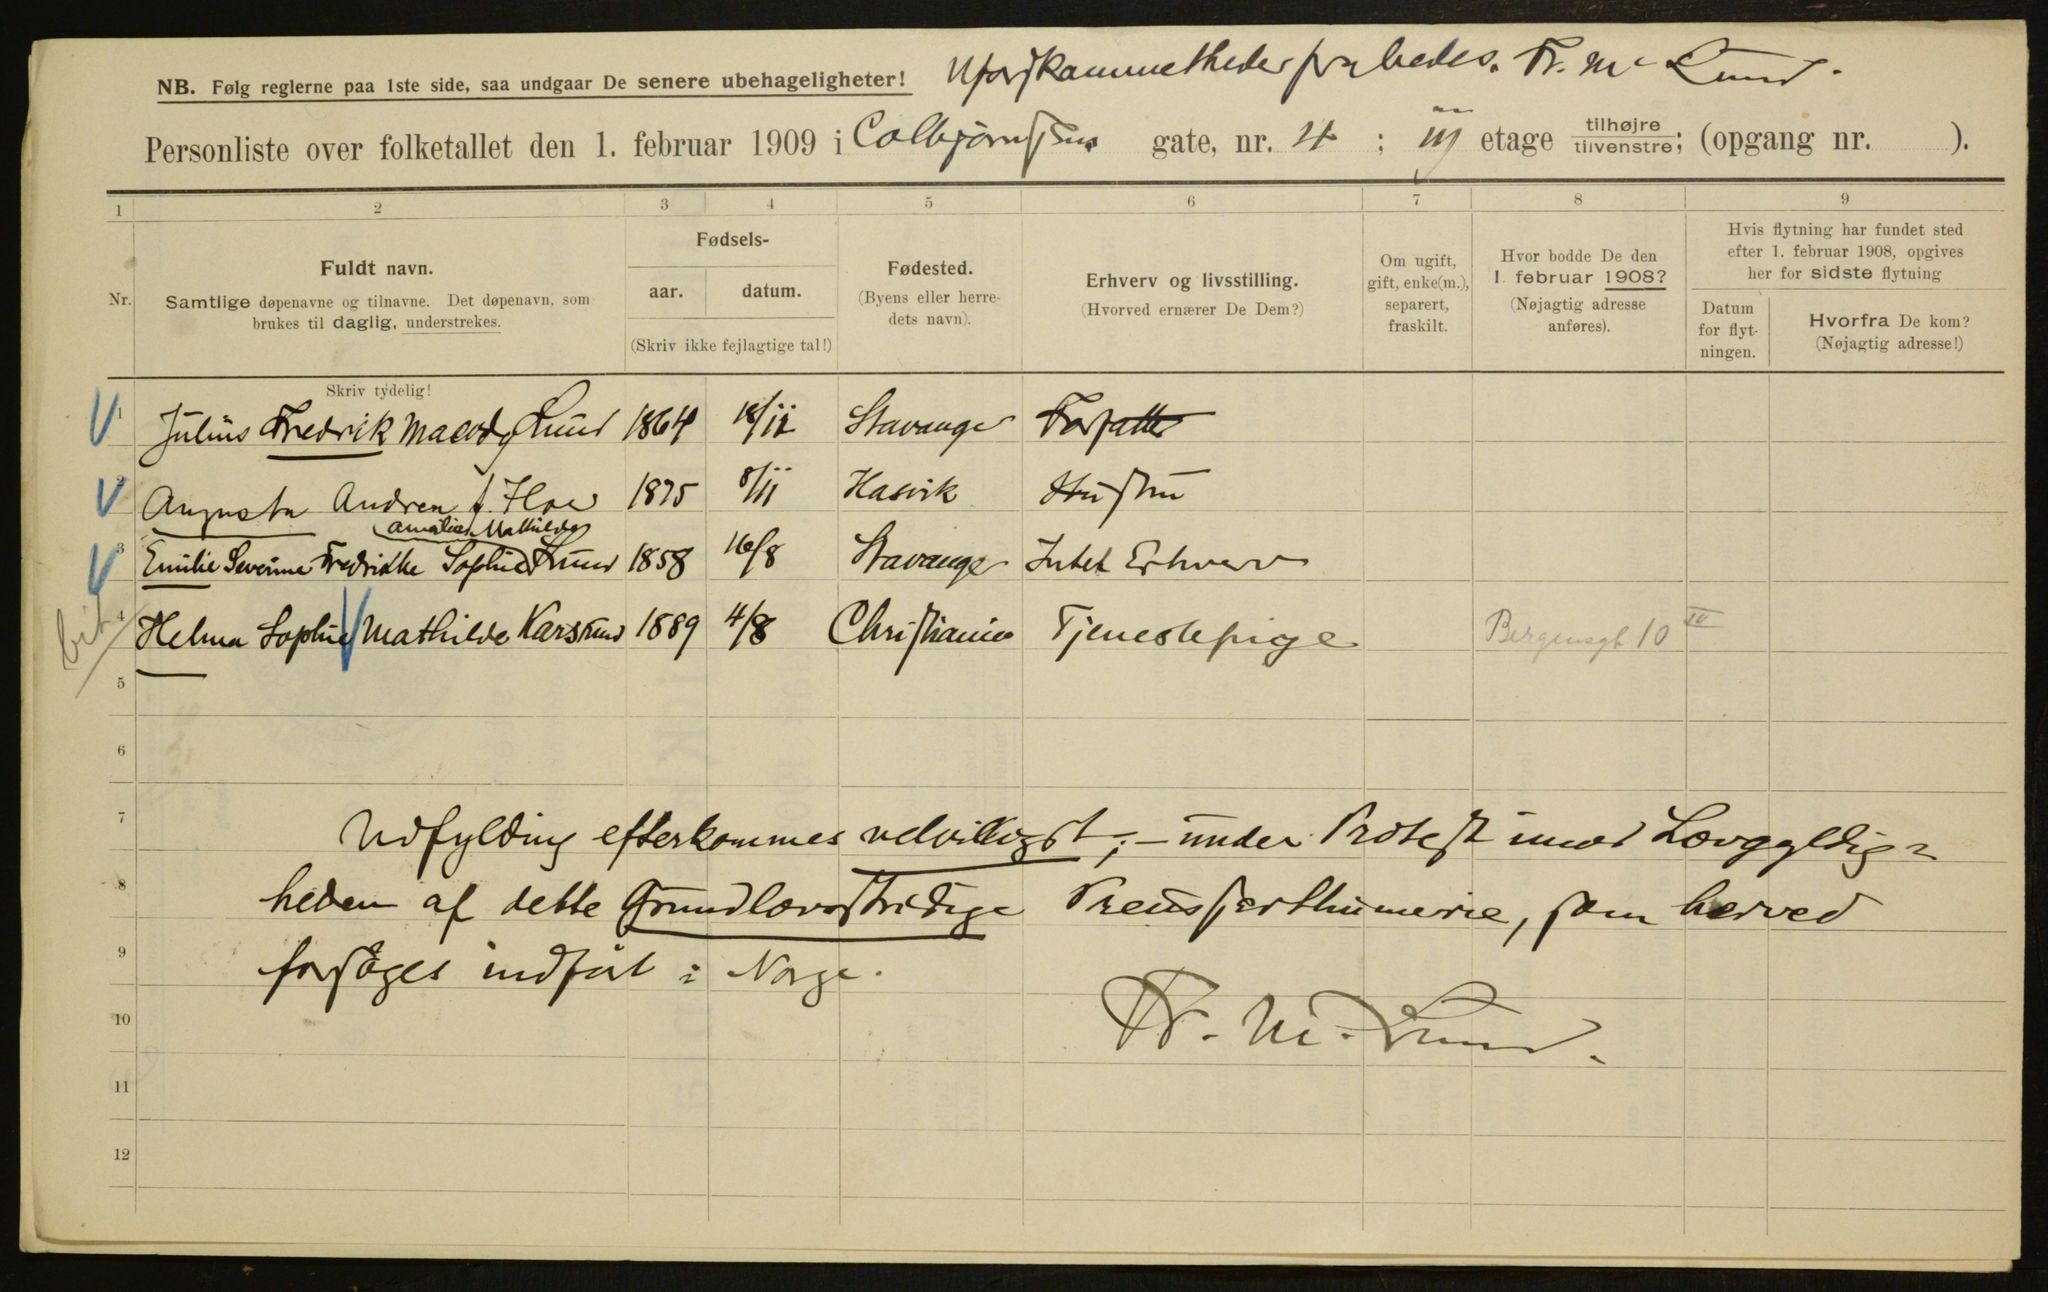 Uforskammetheder frabedes. Fr. M. Lund.
NB. Følg reglerne paa 1ste side, saa undgaar De senere ubehageligheter!
Personliste over folketallet den 1. februar 1909 i Colbjørnsens gate, nr. 4 ; III etage tilhøjre tilvenstre; (opgang nr. ).
1 2 3 4 5 6 7 8 9
Nr.
Fuldt navn.
Samtlige døpenavne og tilnavne. Det døpenavn, som
brukes til daglig, understrekes.
Skriv tydelig!
Fødsels-
aar. datum.
(Skriv ikke fejlagtige tal!)
Fødested.
(Byens eller herre-
dets navn).
Erhverv og livsstilling.
(Hvorved ernærer De Dem?)
Om ugift,
gift, enke(m.),
separert,
fraskilt.
Hvor bodde De den
1. februar 1908?
(Nøjagtig adresse
anføres).
Hvis flytning har fundet sted
efter 1. februar 1908, opgives
her for sidste flytning
Datum
for flyt-
ningen.
Hvorfra De kom?
(Nøjagtig adresse!)
1 Julius Fredrik Lund 1864 18/11 Stavanger Forfatter
2 Augusta Andrea f. Hoe 1875 8/11 Hasvik Hustru
Amalie Mathilde
3 Emilie Severine Fredrikke Sophie Lund 1858 16/8 Stavanger Intet Erhverv
4 Helma Sophie Mathilde Karsrud 1889 4/8 Christiania Tjenestepige Bergensgt 10 IV
5
6
7 Udfylding efterkommes velvilligst; – under Protest imod Lovgyldig-
8 heden af dette Grundlovsstridige som herved
9 forsøges indført i Norge.
10 Fr. M. Lund.
11
12